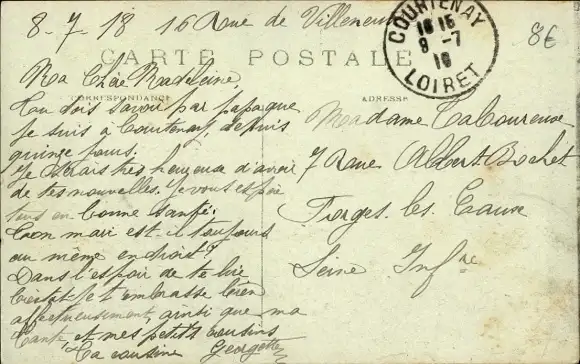 8-7-18 16 Rue de Villeneuve
8€
CARTE POSTALE
COURTENAY
18 15
8-7
18
LOIRET
CORRESPONDANCE
ADRESSE
Ma Chère Madeleine,
Tu dois savoir par papa que
je suis à Courtenay, depuis
quinze jours.
Je serais très heureuse d'avoir
de tes nouvelles. Je vous espère
tous en bonne santé.
Ton mari est-il toujours
au même endroit?
Dans l'espoir de te lire
bientôt je t'embrasse bien
affectueusement, ainsi que ma
tante et mes petits cousins
Ta cousine Georgette
Madame Laboureuse
7 Rue Albert Bochet
Forges les Eaux
Seine Infre